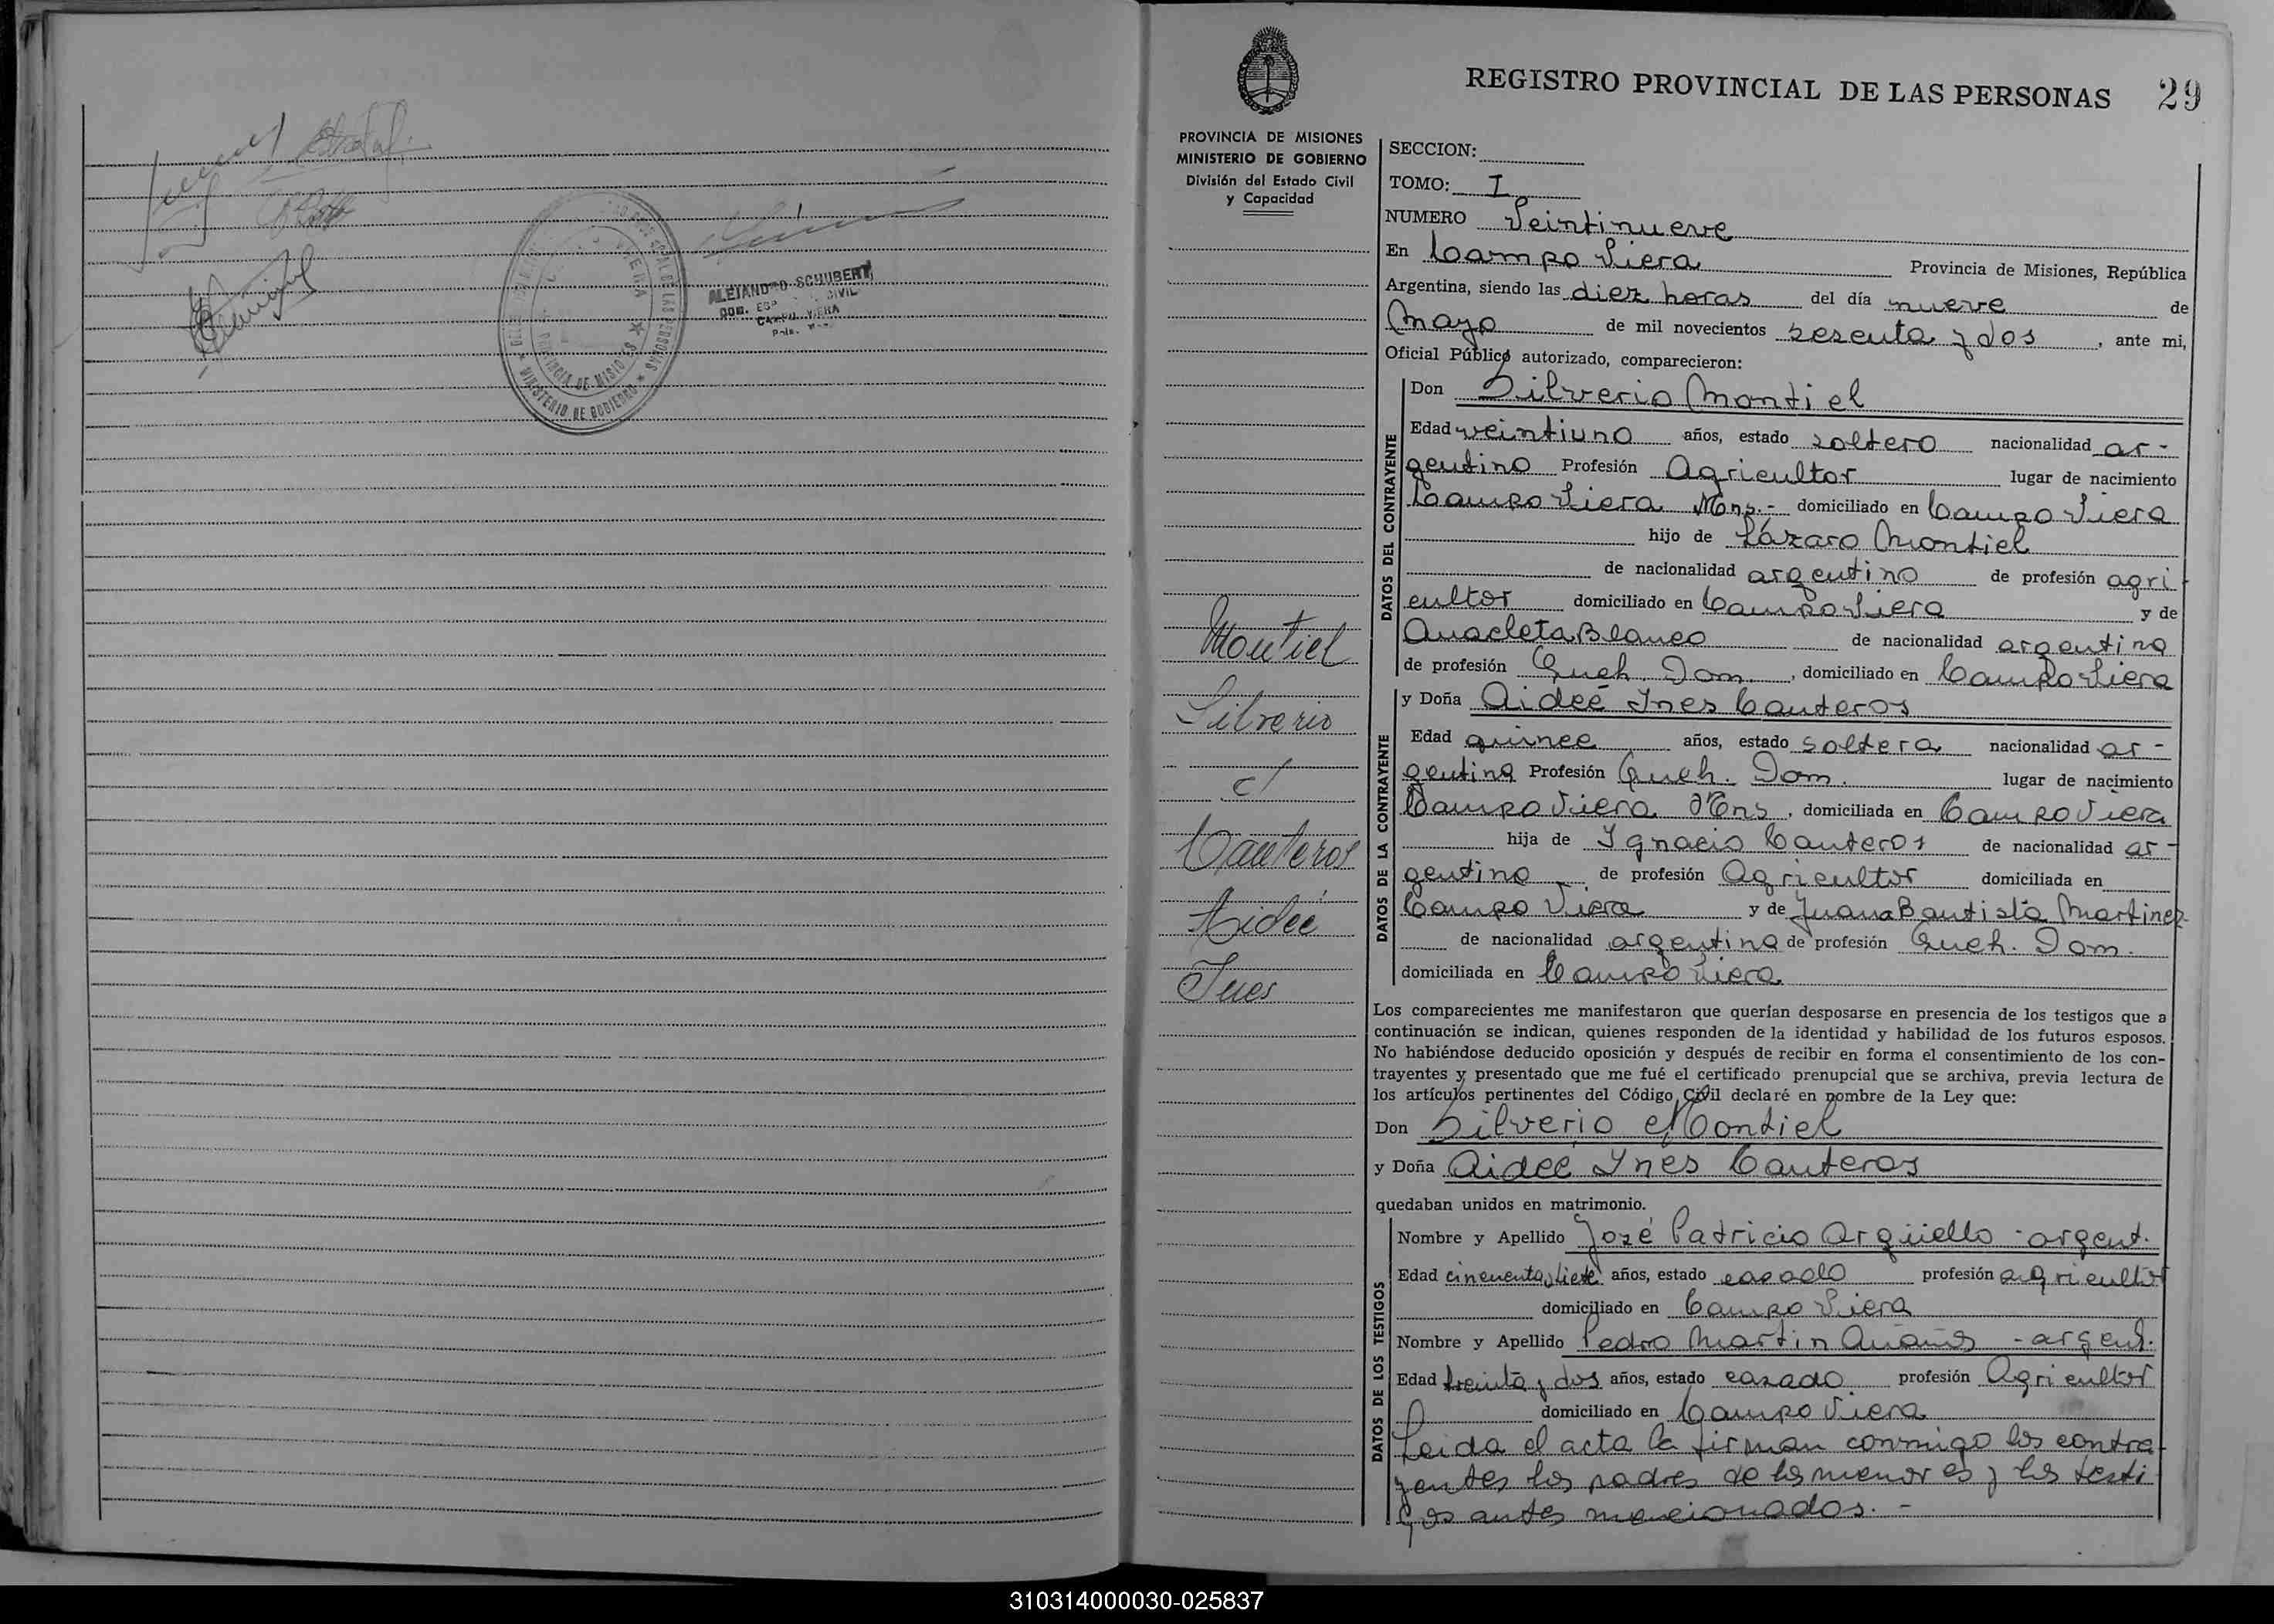 ALEJANDRO SCHUBERT
CAMPO VIERA
PROVINCIA DE MISIONES
MINISTERIO DE GOBIERNO
REGISTRO PROVINCIAL DE LAS PERSONAS 29
PROVINCIA DE MISIONES
MINISTERIO DE GOBIERNO
División del Estado Civil
y Capacidad
Montiel
Silverio
c/
Canteros
Aideé
Ines
SECCION:
TOMO: I
NUMERO Veintinueve
En Campo Viera Provincia de Misiones, República
Argentina, siendo las diez horas del día nueve de
Mayo de mil novecientos sesenta y dos, ante mi,
Oficial Público autorizado, comparecieron:
DATOS DEL CONTRAYENTE
Don Silverio Montiel
Edad veintiuno años, estado soltero nacionalidad ar-
gentino Profesión Agricultor lugar de nacimiento
Campo Viera Mns.- domiciliado en Campo Viera
hijo de Lázaro Montiel
de nacionalidad argentino de profesión agri-
cultor domiciliado en Campo Viera y de
Anacleta Blanco de nacionalidad argentina
de profesión Queh. Dom., domiciliado en Campo Viera
DATOS DE LA CONTRAYENTE
y Doña Aideé Ines Canteros
Edad quince años, estado soltera nacionalidad ar-
gentina Profesión Queh. Dom. lugar de nacimiento
Campo Viera Mns, domiciliada en Campo Viera
hija de Ignacio Canteros de nacionalidad ar-
gentino de profesión Agricultor domiciliada en
Campo Viera y de Juana Bautista Martinez
de nacionalidad argentina de profesión Queh. Dom.
domiciliada en Campo Viera
Los comparecientes me manifestaron que querían desposarse en presencia de los testigos que a
continuación se indican, quienes responden de la identidad y habilidad de los futuros esposos.
No habiéndose deducido oposición y después de recibir en forma el consentimiento de los con-
trayentes y presentado que me fué el certificado prenupcial que se archiva, previa lectura de
los artículos pertinentes del Código Civil declaré en nombre de la Ley que:
Don Silverio Montiel
y Doña Aideé Ynes Canteros
quedaban unidos en matrimonio.
DATOS DE LOS TESTIGOS
Nombre y Apellido José Patricio Argüello - argent.
Edad cincuenta y siete años, estado casado profesión agricultor
domiciliado en Campo Viera
Nombre y Apellido Pedro Martin - argent.
Edad treinta y dos años, estado casado profesión Agricultor
domiciliado en Campo Viera
Leida el acta la firman conmigo los contra-
yentes los padres de los menores y los testi-
gos antes mencionados. -
310314000030-025837